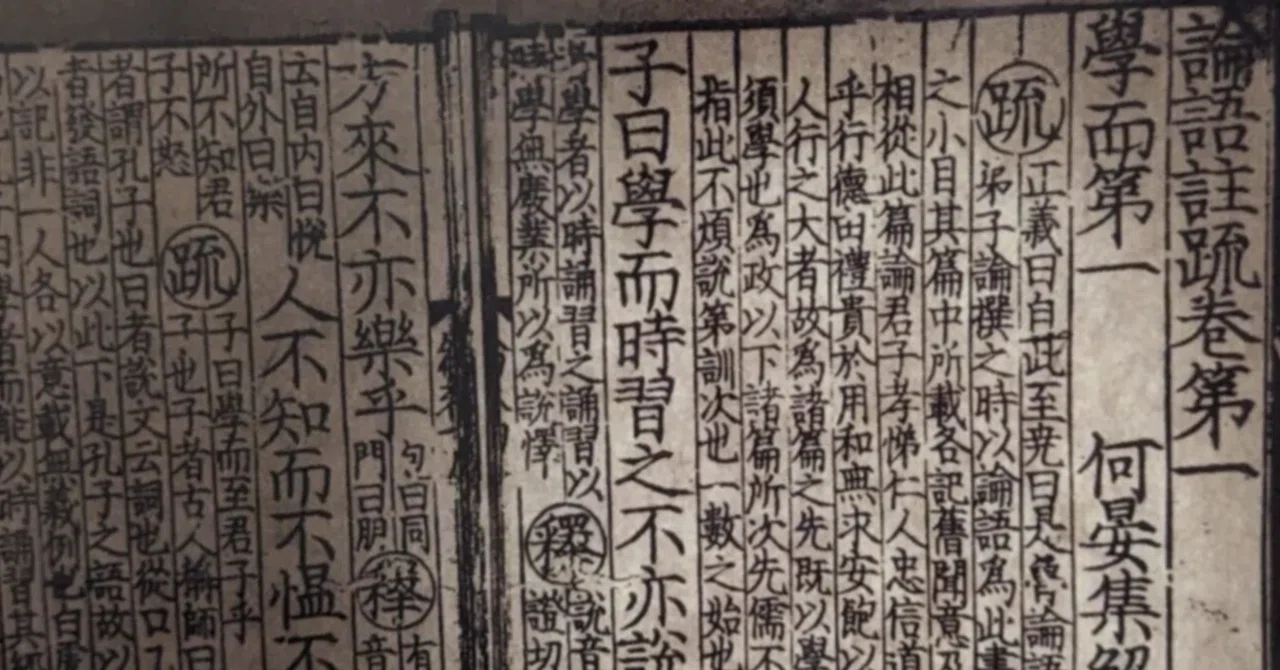 論語註疏卷第一
學而第一 何晏集解
疏 正義曰自此至堯曰是
弟子論撰之時以論語為此書
之小目其篇中所載各記舊聞意及
相從此篇論君子孝悌仁人忠信道
乎行德由禮貴於用和無求安飽以
人行之大者故為諸篇之先既以學
須學也為政以下諸篇所次先儒不
指此不煩說第訓次也一數之始也
子曰學而時習之不亦說
學者以時誦習之誦習以
時學無廢業所以為說懌
釋 說音
證切
方來不亦樂乎 包曰同
門曰朋 釋 有
音
云自內曰悅
自外曰樂 人不知而不慍不
所不知君
子不怒 疏 子曰學而至君子乎
子也子者古人稱師曰
者謂孔子也曰者說文云詞也從口乙
者發語詞也以此下是孔子之語故以
以記非一人各以意載無義例也白虎
學者而能以時誦習其